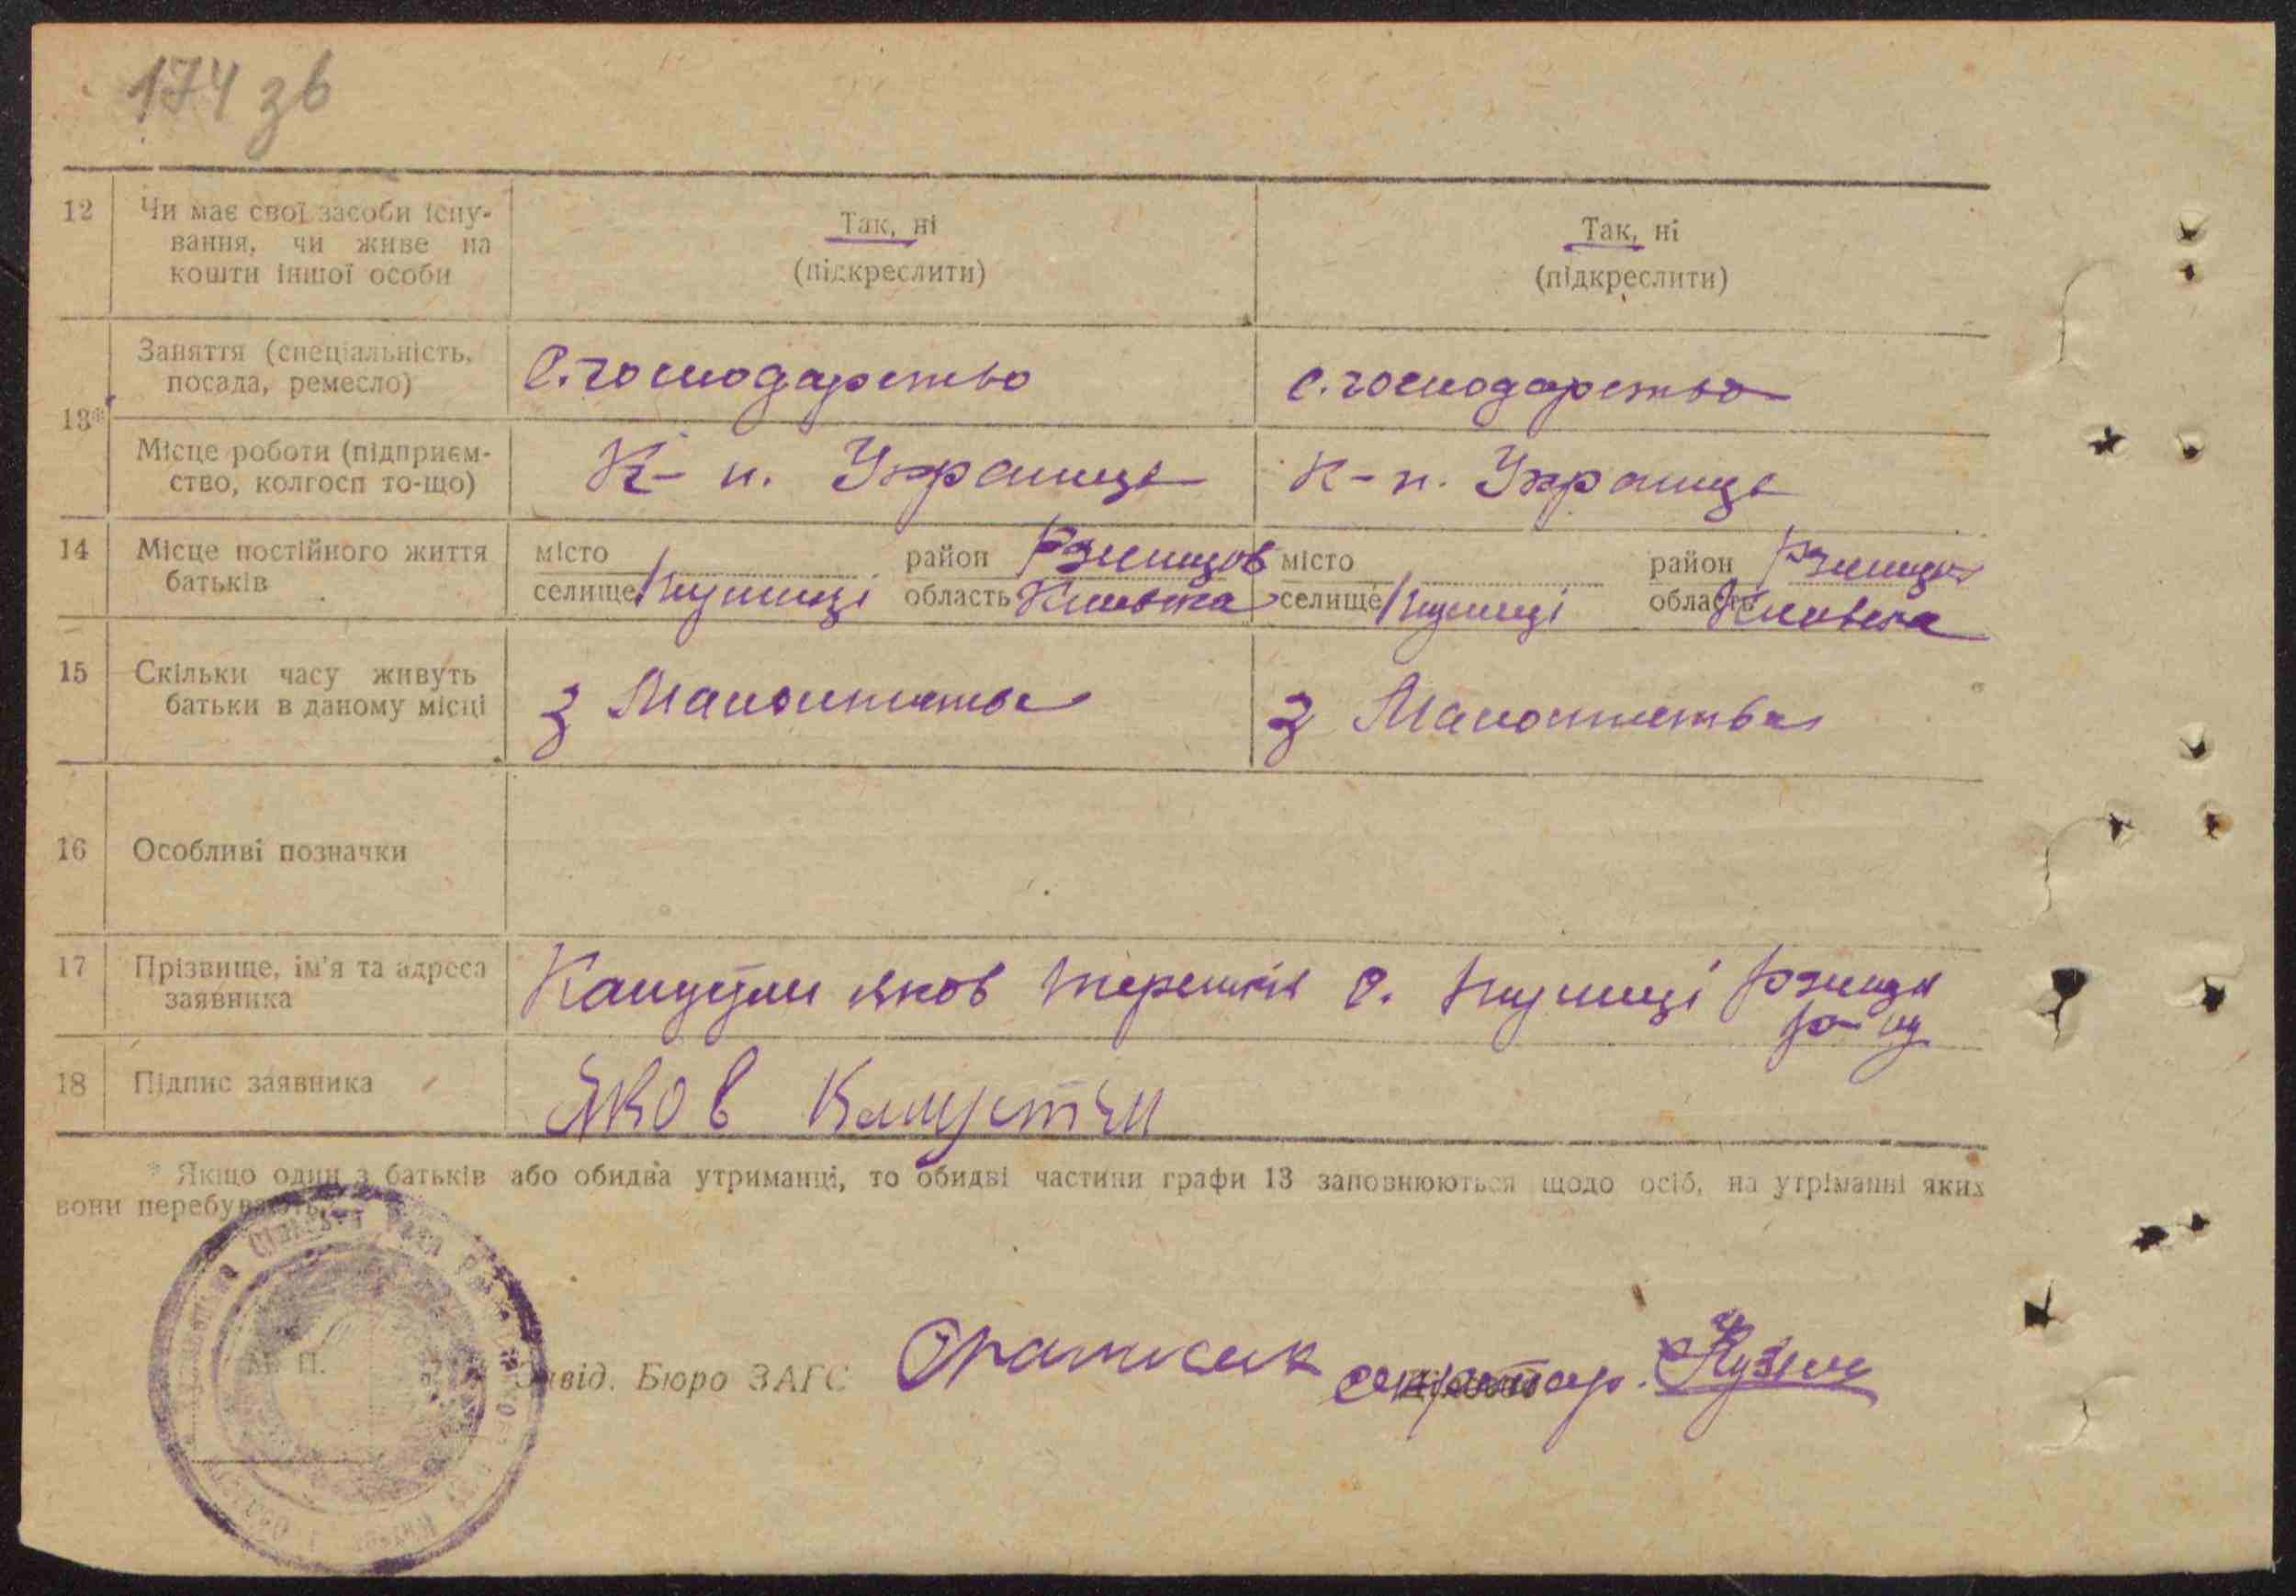 174 зв
12 Чи має свої засоби існу-
вання, чи живе на
кошти іншої особи
Так, ні
(підкреслити)
Так, ні
(підкреслити)
13*
Заняття (спеціальність,
посада, ремесло)
С. господарство
с. господарство
Місце роботи (підприєм-
ство, колгосп то-що)
К-п. Українця
К-п. Українця
14 Місце постійного життя
батьків
місто район Ржищов
селище область Київська
місто район Ржищов
селище область Київська
15 Скільки часу живуть
батьки в даному місці
З Малолітства
З Малолітства
16 Особливі позначки
17 Прізвище, ім'я та адреса
заявника
Яков с. Ржищів
р-ну
18 Підпис заявника
Яков Капустян
* Якщо один з батьків або обидва утриманці, то обидві частини графи 13 заповнюються щодо осіб, на утріманні яких
вони перебувають.
М. П.
Завід. Бюро ЗАГС секретар.
Сільська Рада